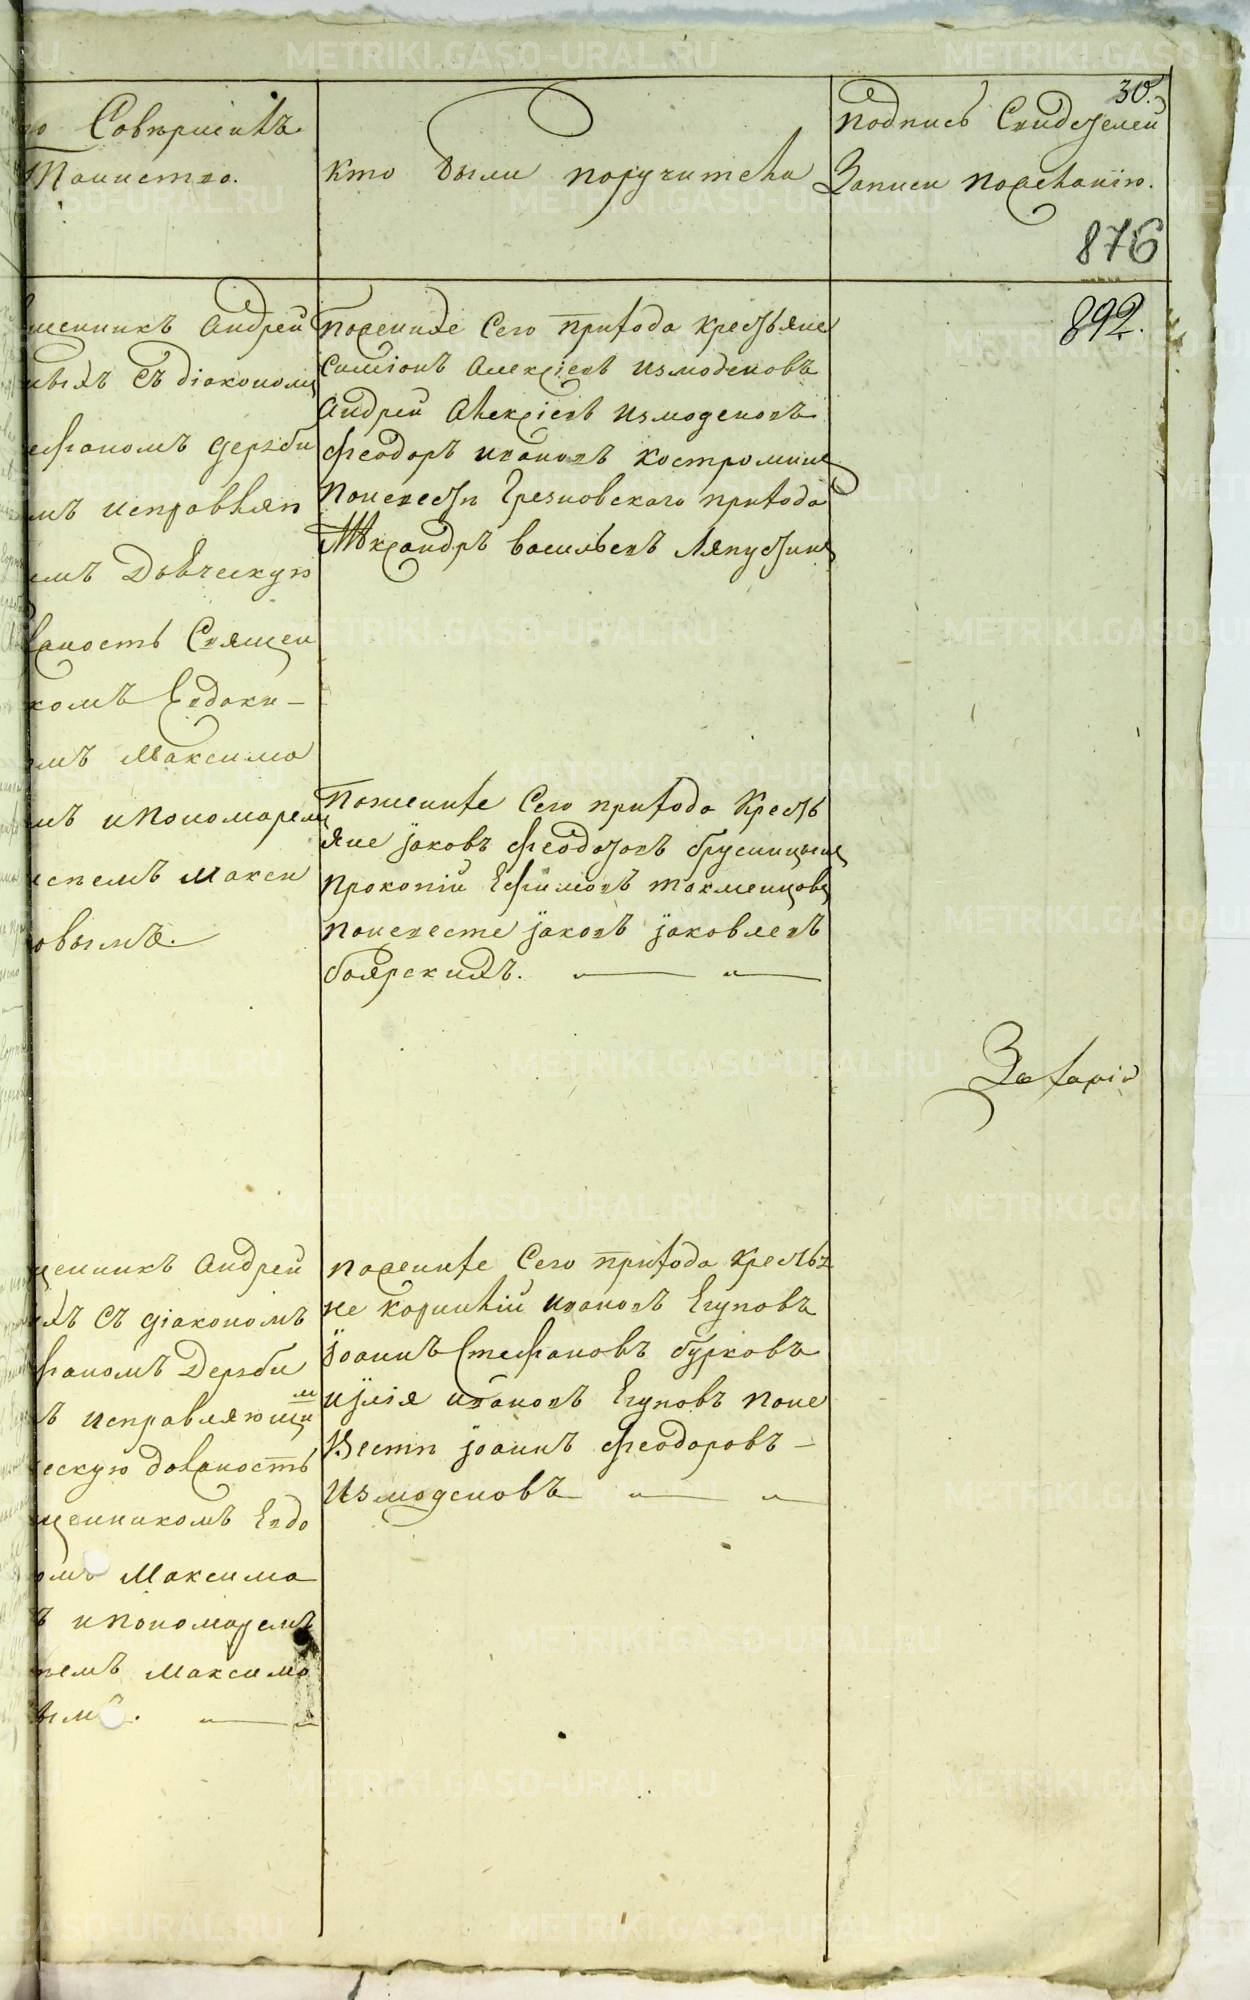 30.
Совершилъ
Таинство.
кто были поручители
Подпись Свидетелей
Записи пожеланию.
876
892.
Андрей
съ діакономъ
Дерзби
исправлял
Дьяческую
должность Священ
комъ Евдоки-
мъ Максимо
мъ и Пономарем
Макси
овымъ.
По женихе Сего прихода крестьяне
Симіонъ Алексіевъ Измоденовъ
Андрей Алексіевъ Измоденовъ
Феодоръ Ивановъ Костроминъ
По невесте Грезновскаго прихода
Александръ Васильевъ Ляпустинъ
По жених‌е Сего прихода Кресть
яне Іаковъ Феодоровъ Брусницынъ
Прокопій Ефимовъ Токменцовъ
по невесте Іаковъ Іаковлевъ
боярскихъ.
Захарій
щенникъ Андрей
съ діакономъ
фаномъ Дерзби
исправляющим
ческую должность
щенникомъ Евдо
омъ Максимо
ъ и Пономаремъ
Максимо
вымъ.
По женихе Сего прихода крестья
не Корнилій Ивановъ Егуновъ
Іоаннъ Стефановъ бурковъ
Илія Ивановъ Егуновъ по не
весте Іоаннъ Феодоровъ -
Измоденовъ
METRIKI.GASO-URAL.RU